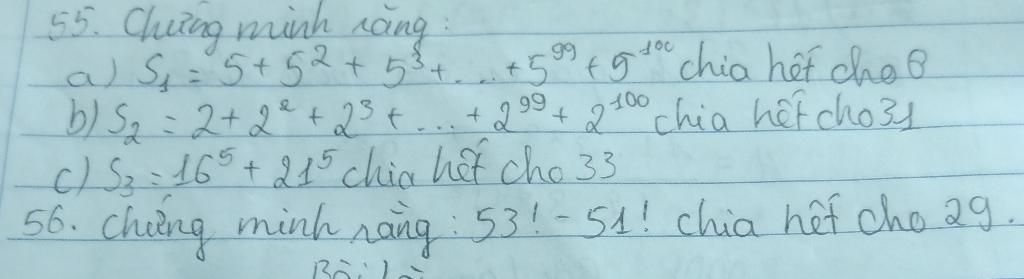 55. Chứng minh rằng:
a) S₁ = 5 + 5² + 5³ + ... + 5⁹⁹ + 5¹⁰⁰ chia hết cho 6
b) S₂ = 2 + 2² + 2³ + ... + 2⁹⁹ + 2¹⁰⁰ chia hết cho 31
c) S₃ = 16⁵ + 21⁵ chia hết cho 33
56. Chứng minh rằng: 53! - 51! chia hết cho 29.
Bài